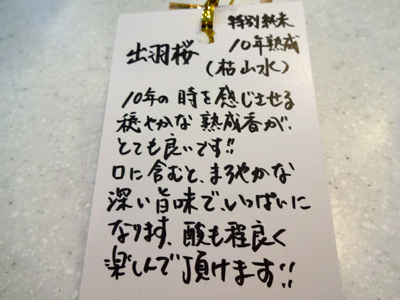 特別純米
出羽桜 10年熟成
(枯山水)
10年の時を感じさせる
穏やかな熟成香が、
とても良いです!!
口に含むと、まろやかな
深い旨味で、いっぱいに
なります、酸も程良く
楽しんで頂けます!!